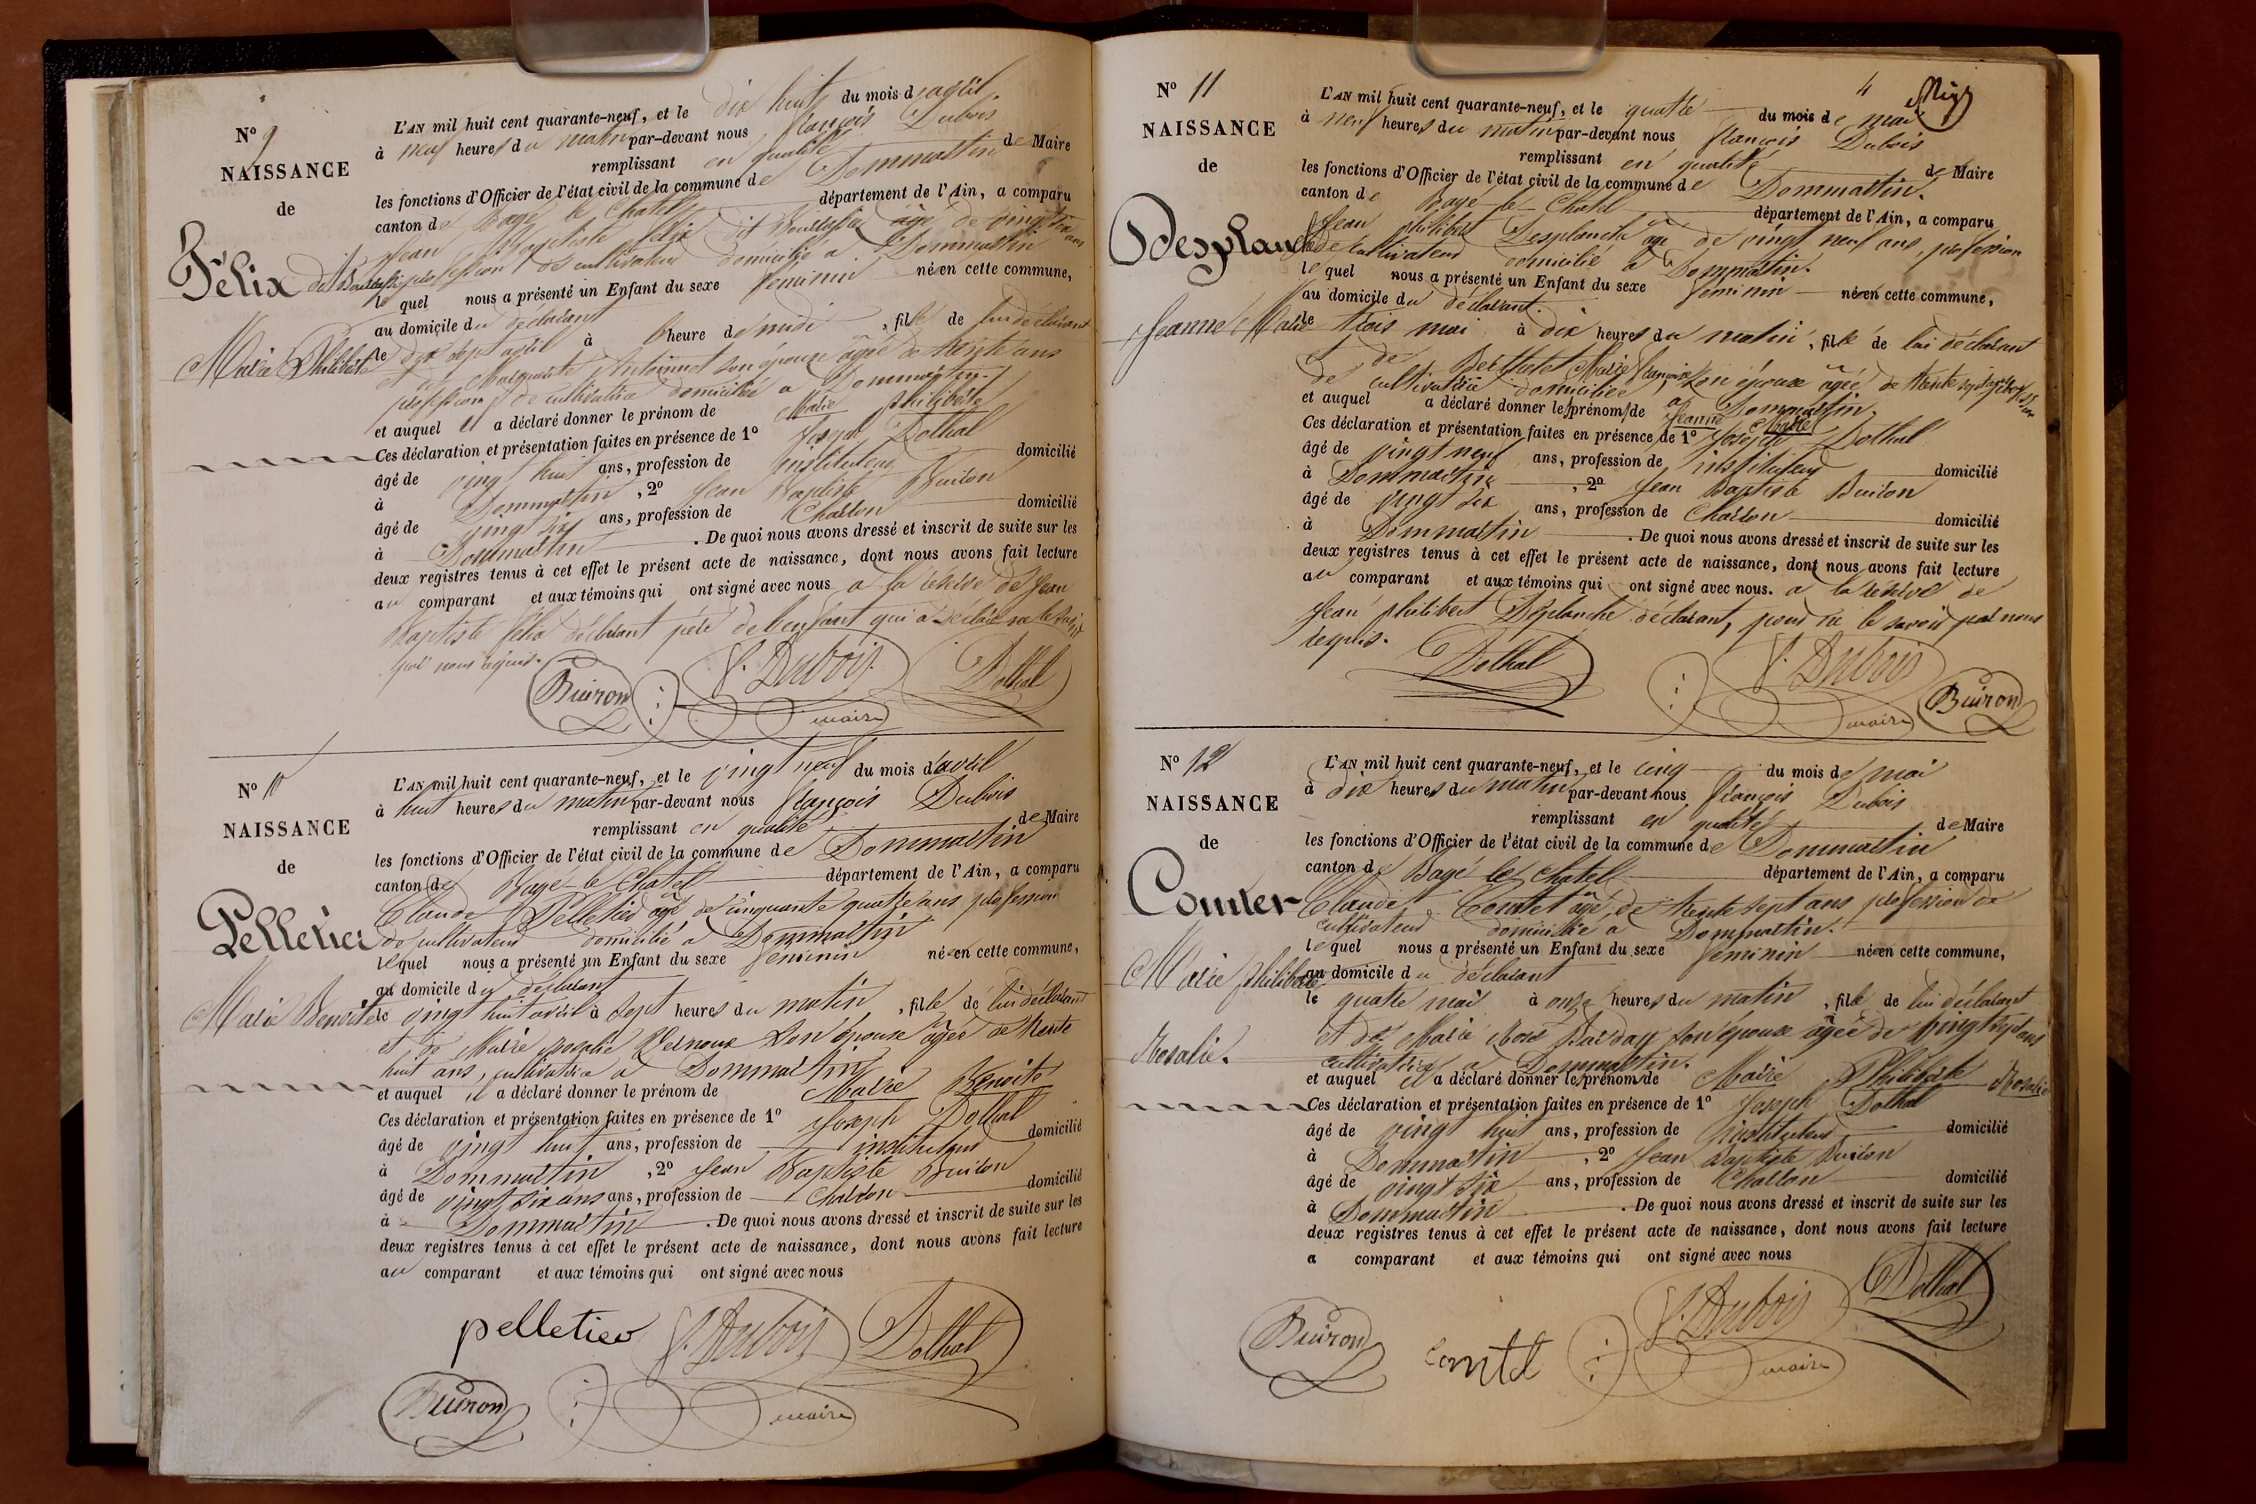 Nº 9
NAISSANCE
de
Félix dit Boullefin
Marie Philiberte
L'AN mil huit cent quarante-neuf, et le dix huit du mois d'avril
à neuf heures du matin par-devant nous françois Dubois
remplissant en qualité de Maire
les fonctions d'Officier de l'état civil de la commune de Dommartin
canton de Bagé le Chatel département de l'Ain, a comparu
Jean Baptiste félix dit âgé de vingt six ans
profession de cultivateur domicilié a Dommartin
lequel nous a présenté un Enfant du sexe féminin né en cette commune,
au domicile du déclarant
le dix sept avril à heure de midi, fille de lui déclarant
et de Marguerite son épouse âgée de trente ans
profession de cultivatrice domiciliée a Dommartin.
et auquel il a déclaré donner le prénom de Marie philiberte
Ces déclaration et présentation faites en présence de 1º Joseph Dothal
âgé de vingt huit ans, profession de instituteur domicilié
à Dommartin, 2º Jean Baptiste Buiron
âgé de vingt six ans, profession de Charron domicilié
à Dommartin. De quoi nous avons dressé et inscrit de suite sur les
deux registres tenus à cet effet le présent acte de naissance, dont nous avons fait lecture
au comparant et aux témoins qui ont signé avec nous a la réserve de Jean
Baptiste félix déclarant père de l'enfant qui a déclaré ne le savoir
par nous requis.
Buiron f. Dubois Dothal
maire
Nº 10
NAISSANCE
de
Pelletier
Marie Benoite
L'AN mil huit cent quarante-neuf, et le vingt neuf du mois d'avril
à huit heures du matin par-devant nous françois Dubois
remplissant en qualité de Maire
les fonctions d'Officier de l'état civil de la commune de Dommartin
canton de Bagé le Chatel département de l'Ain, a comparu
Claude Pelletier âgé de cinquante quatre ans profession
de cultivateur domicilié a Dommartin
lequel nous a présenté un Enfant du sexe féminin née en cette commune,
au domicile du déclarant
le vingt huit avril à sept heures du matin, fille de lui déclarant
et de Marie josephe son épouse âgée de trente
huit ans, cultivatrice a Dommartin
et auquel il a déclaré donner le prénom de Marie Benoite
Ces déclaration et présentation faites en présence de 1º Joseph Dothal
âgé de vingt huit ans, profession de instituteur domicilié
à Dommartin, 2º Jean Baptiste Buiron
âgé de vingt six ans ans, profession de Charron domicilié
à Dommartin. De quoi nous avons dressé et inscrit de suite sur les
deux registres tenus à cet effet le présent acte de naissance, dont nous avons fait lecture
au comparant et aux témoins qui ont signé avec nous
pelletier f. Dubois Dothal
Buiron maire
4
Nº 11
NAISSANCE
de
Desplanche
Jeanne Marie
L'AN mil huit cent quarante-neuf, et le quatre du mois de mai
à neuf heures du matin par-devant nous françois Dubois
remplissant en qualité de Maire
les fonctions d'Officier de l'état civil de la commune de Dommartin.
canton de Bagé le Chatel département de l'Ain, a comparu
Jean philibert Desplanche âgé de vingt neuf ans, profession
de cultivateur domicilié a Dommartin.
lequel nous a présenté un Enfant du sexe féminin née en cette commune,
au domicile du déclarant.
le trois mai à dix heures du matin, fille de lui déclarant
et de Berthelet Marie françoise son épouse âgée de trente sept ans profession
de cultivatrice domiciliée a Dommartin.
et auquel a déclaré donner les prénoms de Jeanne Marie
Ces déclaration et présentation faites en présence de 1º Joseph Dothal
âgé de vingt neuf ans, profession de instituteur domicilié
à Dommartin, 2º Jean Baptiste Buiron
âgé de vingt six ans, profession de Charron domicilié
à Dommartin. De quoi nous avons dressé et inscrit de suite sur les
deux registres tenus à cet effet le présent acte de naissance, dont nous avons fait lecture
au comparant et aux témoins qui ont signé avec nous. a la réserve de
Jean philibert Desplanche déclarant, pour ne le savoir par nous
requis.
Dothal f. Dubois Buiron
maire
Nº 12
NAISSANCE
de
Comter
Marie philiberte
Rosalie.
L'AN mil huit cent quarante-neuf, et le cinq du mois de mai
à dix heures du matin par-devant nous françois Dubois
remplissant en qualité de Maire
les fonctions d'Officier de l'état civil de la commune de Dommartin
canton de Bagé le Chatel département de l'Ain, a comparu
Claude Comtet âgé de trente sept ans profession de
cultivateur domicilié a Dommartin.
lequel nous a présenté un Enfant du sexe féminin née en cette commune,
au domicile du déclarant
le quatre mai à onze heures du matin, fille de lui déclarant
et de Marie Rose son épouse âgée de vingt sept ans
cultivatrice a Dommartin.
et auquel il a déclaré donner les prénoms de Marie Philiberte Rosalie
Ces déclaration et présentation faites en présence de 1º Joseph Dothal
âgé de vingt huit ans, profession de instituteur domicilié
à Dommartin, 2º Jean Baptiste Buiron
âgé de vingt six ans, profession de Charron domicilié
à Dommartin. De quoi nous avons dressé et inscrit de suite sur les
deux registres tenus à cet effet le présent acte de naissance, dont nous avons fait lecture
a comparant et aux témoins qui ont signé avec nous
Buiron comtet f. Dubois Dothal
maire